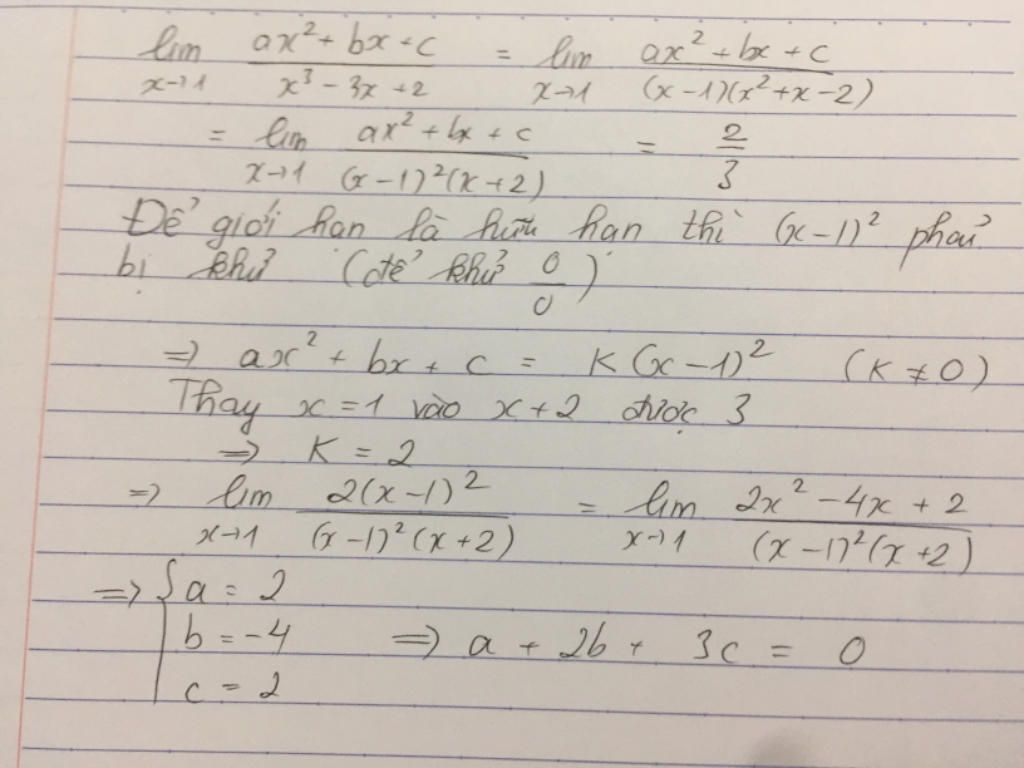 lim x→1 (ax² + bx + c)/(x³ - 3x + 2) = lim x→1 (ax² + bx + c)/((x-1)(x²+x-2))
= lim x→1 (ax² + bx + c)/((x-1)²(x+2)) = 2/3
Để giới hạn là hữu hạn thì (x-1)² phải
bị khử (để khử 0/0)
=> ax² + bx + c = K(x-1)² (K ≠ 0)
Thay x = 1 vào x+2 được 3
=> K = 2
=> lim x→1 2(x-1)²/((x-1)²(x+2)) = lim x→1 (2x² - 4x + 2)/((x-1)²(x+2))
=> { a = 2
b = -4 => a + 2b + 3c = 0
c = 2